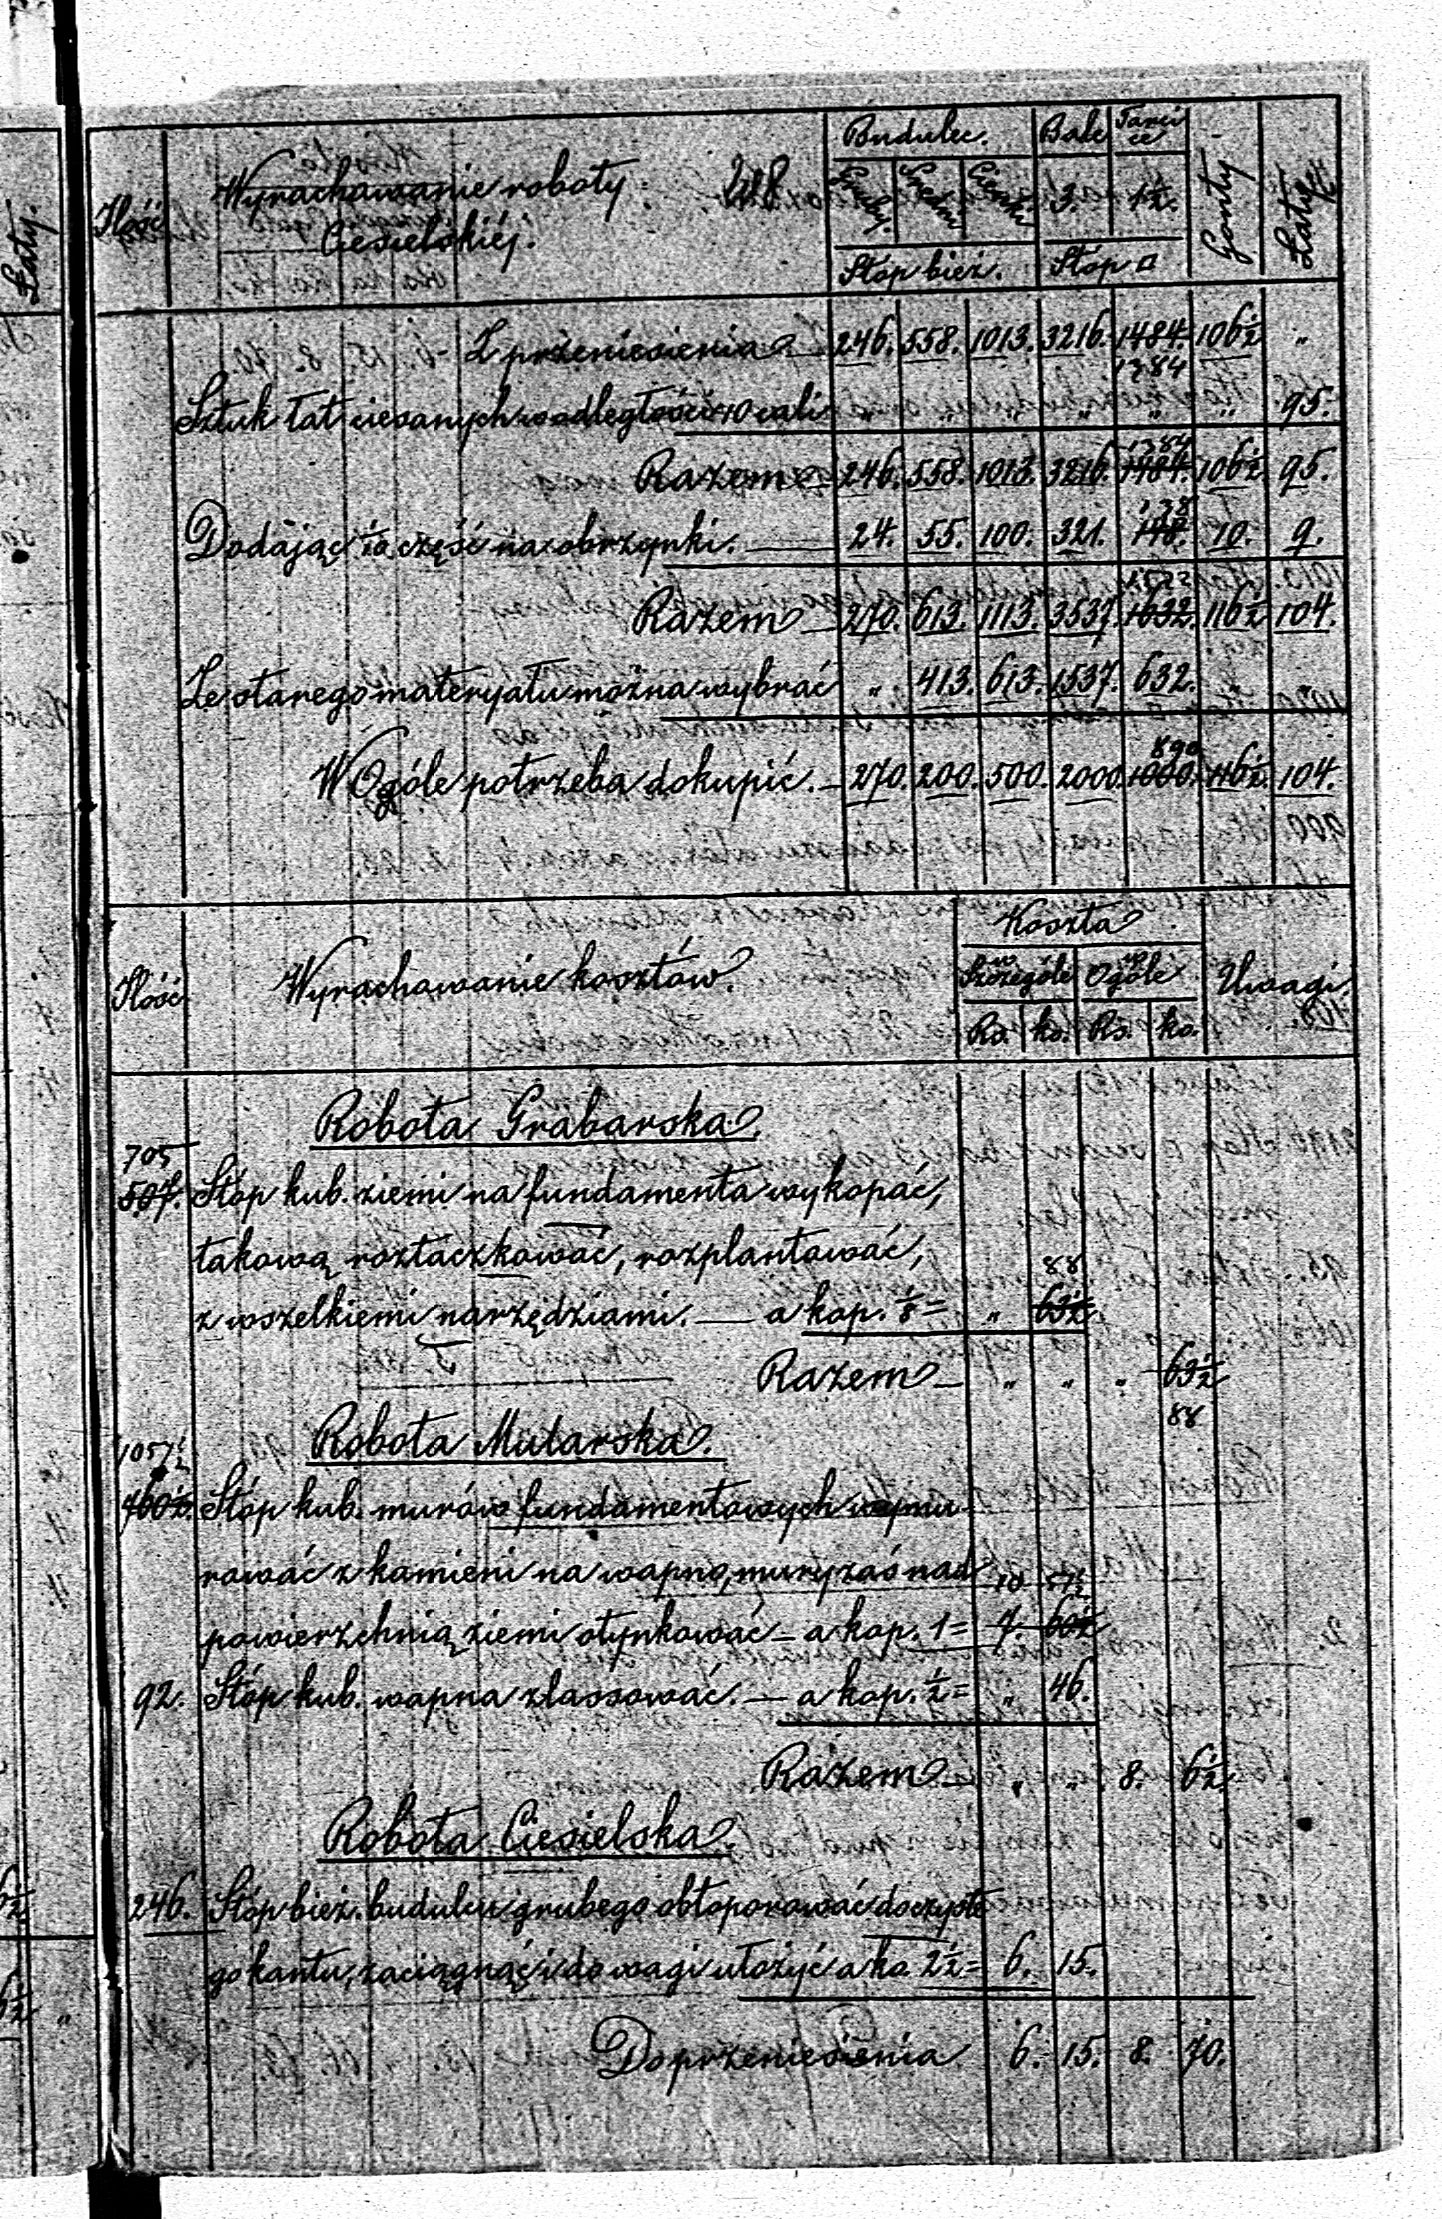 Ilość Wyrachowanie roboty Ciesielskiéj. Budulec. Bale Tarcice Gonty Łaty
Gruby. Średni Cienki 3. 1½.
Stóp bież. Stóp □
Z przeniesienia 246. 558. 1013. 3216. 1484. 106½ „
1384
Sztuk łat ciesanych w odległości 10 cali „ „ „ „ „ „ 95.
1384
Razem 246. 558. 1013. 3216. 1484. 106½. 95.
138
Dodając 1/10 część na obrzynki. 24. 55. 100. 321. 148. 10. 9.
Razem 270. 613. 1113. 3537. 1632. 116½ 104.
Ze starego materyału można wybrać „ 413. 613. 1537. 632. „
890
W Ogóle potrzeba dokupić. 270. 200. 500. 2000. 1000. 116½. 104.
Ilość Wyrachowanie kosztów. Koszta Uwagi
w Szczególe w Ogóle
Rs. ko. Rs. ko.
Robota Grabarska.
705
507. Stóp kub. ziemi na fundamenta wykopać,
takową roztaczkować, rozplantować,
88
z wszelkiemi narzędziami. — a kop. ⅛ = „ 63½
Razem — „ „ „ 63½
88
Robota Mularska.
1057½
760½. Stóp kub. murów fundamentowych wymu-
rować z kamieni na wapno, mury zaś nad
10 57½
powierzchnią ziemi otynkować — a kop. 1 = 7. 60½
92. Stóp kub. wapna zlassować. — a kop. ½ = „ 46.
Razem — „ „ 8. 6½
Robota Ciesielska.
246. Stóp bież. budulcu grubego obtoporować do czyste
go kantu, zaciągnąć i do wagi ułożyć a ko. 2½ = 6. 15.
Do przeniesienia 6. 15. 8. 70.